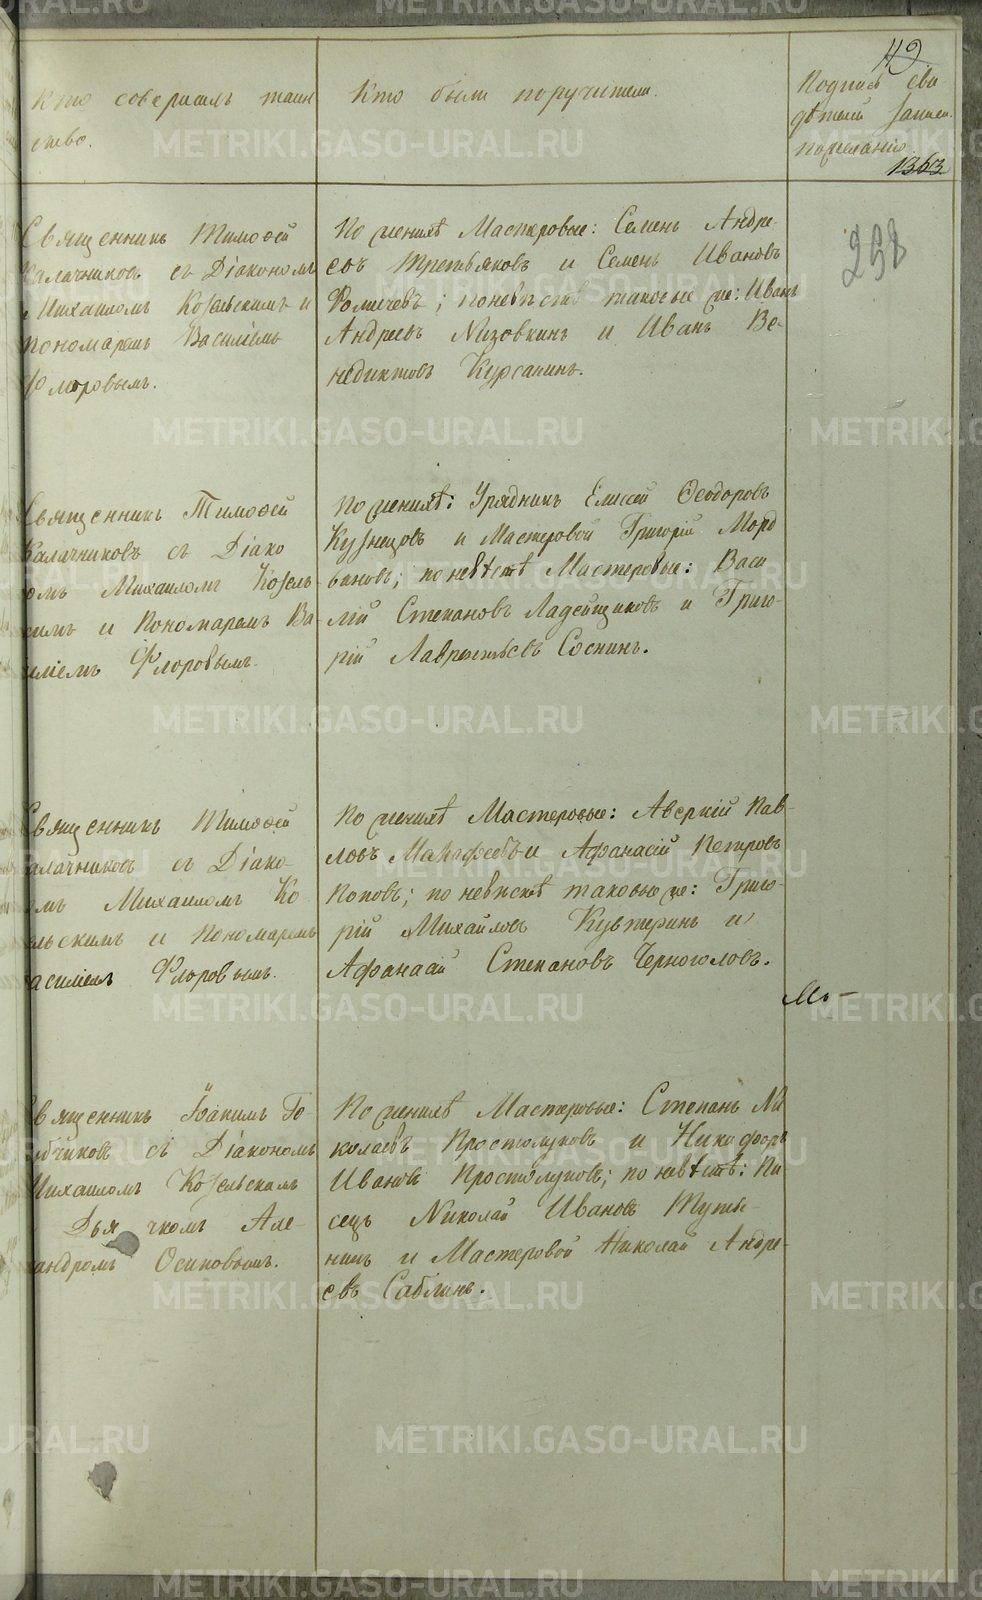 Кто совершалъ таин
ство.
Кто были поручители.
Подпись сви
дѣтелей
119
1363
298
Священникъ Тимоѳей
Калачниковъ съ Діакономъ
Михаиломъ Козельскимъ и
пономаремъ Василіемъ
Флоровымъ.
По женихѣ Мастеровые: Семенъ Андре-
евъ Третьяковъ и Семенъ Ивановъ
Фомичевъ; по невѣстѣ таковые же: Иванъ
Андреевъ Низовкинъ и Иванъ Ве-
недиктовъ Курсанинъ.
Священникъ Тимоѳей
Калачниковъ съ Діако
номъ Михаиломъ Козель
скимъ и Пономаремъ Ва-
силіемъ Флоровымъ.
По женихѣ: Урядникъ Елисей Ѳеодоровъ
Кузнецовъ и Мастеровой Григорій Морд
вановъ; по невѣстѣ Мастеровые: Васи
лій Степановъ Ладейщиковъ и Григо-
рій Лаврентьевъ Соснинъ.
Священникъ Тимоѳей
Калачниковъ съ Діако-
номъ Михаиломъ Ко
зельскимъ и Пономаремъ
Василіемъ Флоровымъ.
По женихѣ Мастеровые: Аверкій Пав-
ловъ и Афанасій Петровъ
Поповъ; по невѣстѣ таковые же: Григо-
рій Михайловъ и
Афанасій Степановъ Черноголовъ.
Священникъ Іоакимъ
съ Діакономъ
Михаиломъ Козельскимъ
Дьячкомъ Але-
ксандромъ Осиповымъ.
По женихѣ Мастеровые: Степанъ Ни
колаевъ Простолуповъ и Никифоръ
Ивановъ Простолуповъ; по невѣстѣ: Пи
сецъ Николай Ивановъ Туты-
нинъ и Мастеровой Николай Андре-
евъ Саблинъ.
METRIKI.GASO-URAL.RU